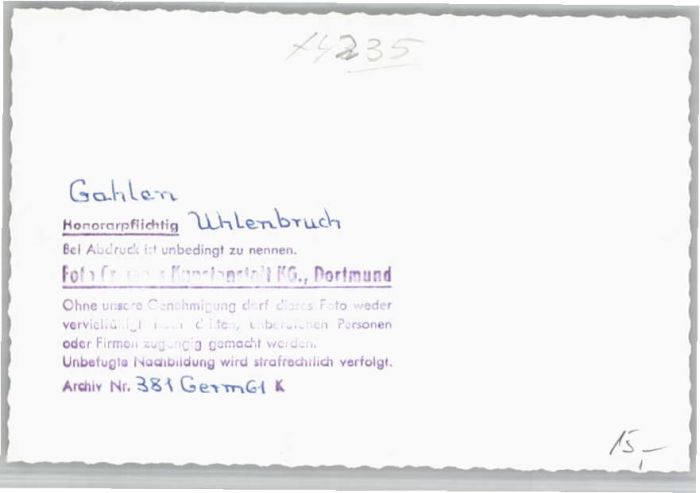 4235
Gahlen
Honorarpflichtig Uhlenbruch
Bei Abdruck ist unbedingt zu nennen.
Foto Kunstanstalt KG., Dortmund
Ohne unsere Genehmigung darf dieses Foto weder
vervielfältigt noch dritten, unberufenen Personen
oder Firmen zugängig gemacht werden.
Unbefugte Nachbildung wird strafrechtlich verfolgt.
Archiv Nr. 381 Germ61 K
15,-